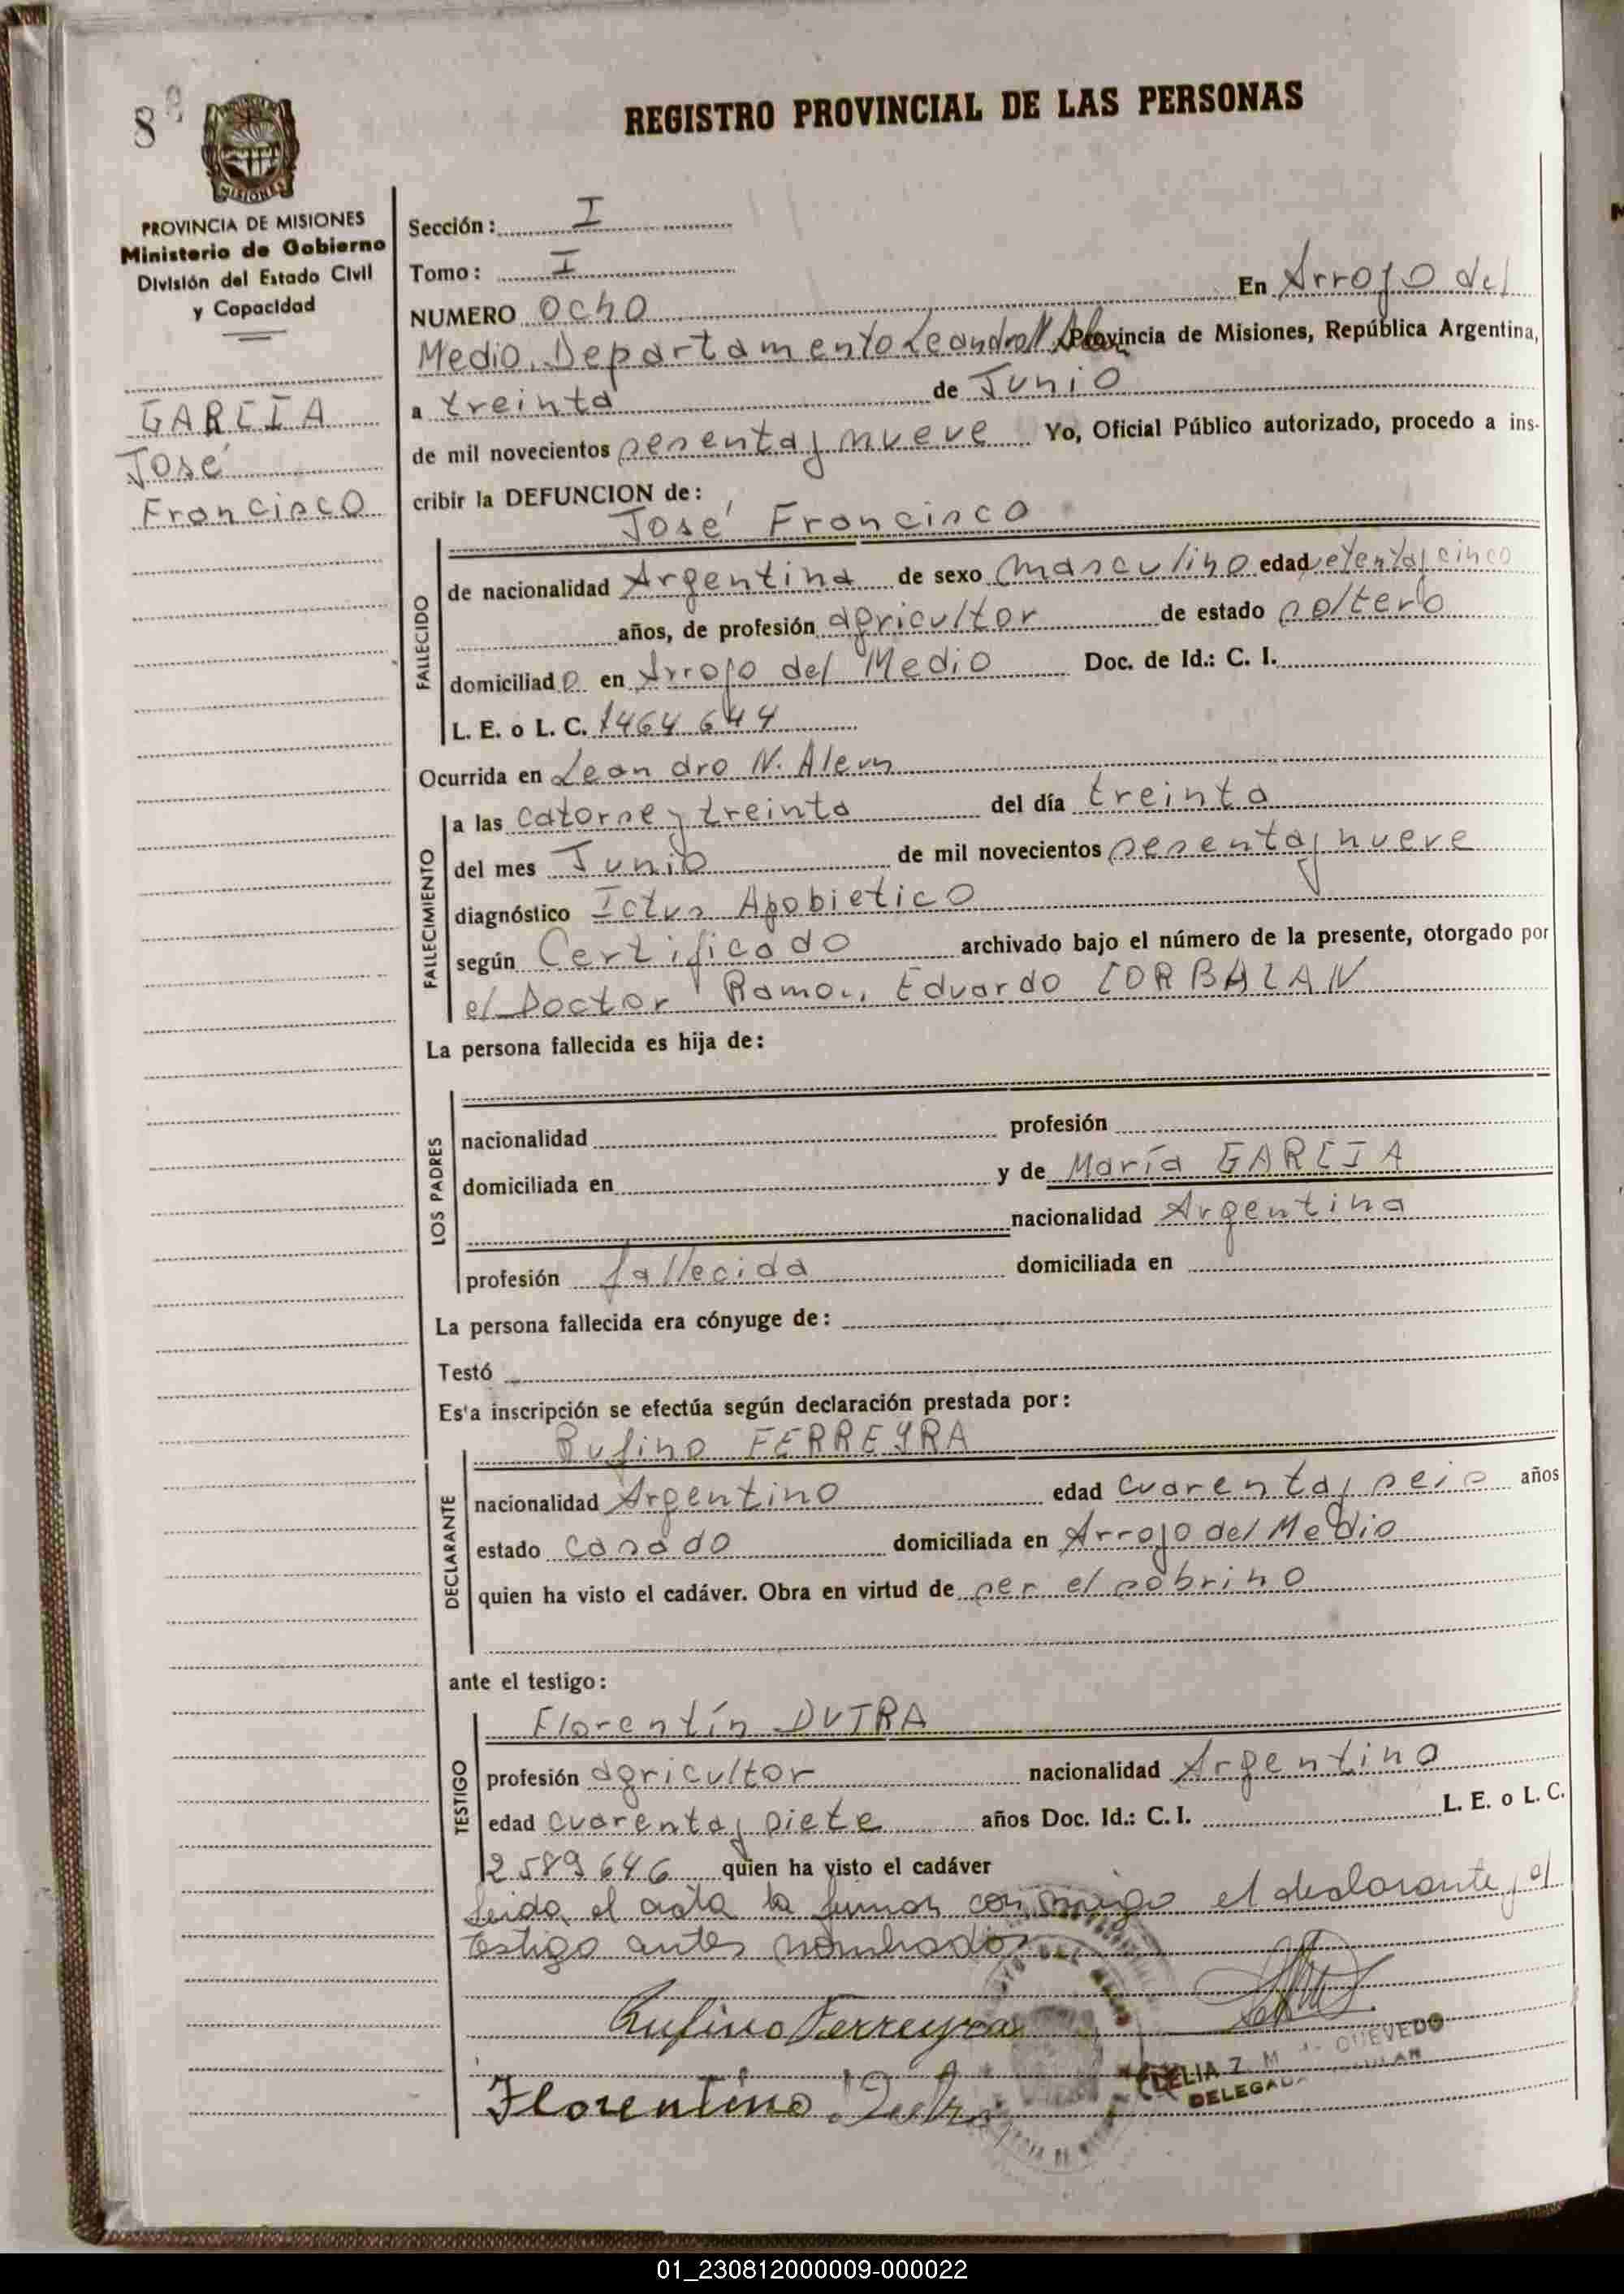 8
REGISTRO PROVINCIAL DE LAS PERSONAS
MISIONES
PROVINCIA DE MISIONES
Ministerio de Gobierno
División del Estado Civil
y Capacidad
GARCIA
José
Francisco
Sección: I
Tomo: I
NUMERO ocho En Arroyo del
Medio, Departamento Leandro N. Alem Provincia de Misiones, República Argentina,
a treinta de Junio
de mil novecientos sesenta y nueve Yo, Oficial Público autorizado, procedo a ins-
cribir la DEFUNCION de:
José Francisco
FALLECIDO
de nacionalidad Argentina de sexo masculino edad setenta y cinco
años, de profesión agricultor de estado soltero
domiciliado en Arroyo del Medio Doc. de Id.: C. I.
L. E. o L. C. 1464644
Ocurrida en Leandro N. Alem
FALLECIMIENTO
a las catorse y treinta del día treinta
del mes Junio de mil novecientos sesenta y nueve
diagnóstico Ictus Apobietico
según Certificado archivado bajo el número de la presente, otorgado por
el Doctor Ramon Eduardo CORBALAN
La persona fallecida es hija de:
LOS PADRES
nacionalidad profesión
domiciliada en y de María GARCIA
nacionalidad Argentina
profesión fallecida domiciliada en
La persona fallecida era cónyuge de:
Testó
Es'a inscripción se efectúa según declaración prestada por:
DECLARANTE
Rufino FERREYRA
nacionalidad Argentino edad cuarenta y seis años
estado casado domiciliada en Arroyo del Medio
quien ha visto el cadáver. Obra en virtud de ser el sobrino
ante el testigo:
TESTIGO
Florentín DUTRA
profesión agricultor nacionalidad Argentina
edad cuarenta y siete años Doc. Id.: C. I. L. E. o L. C.
2589646 quien ha visto el cadáver
Leida el acta la firman conmigo el declarante y el
testigo antes nombrados
Rufino Ferreyra
Florentino Dutra
CELIA Z. M. de QUEVEDO
DELEGADA TITULAR
01_230812000009-000022